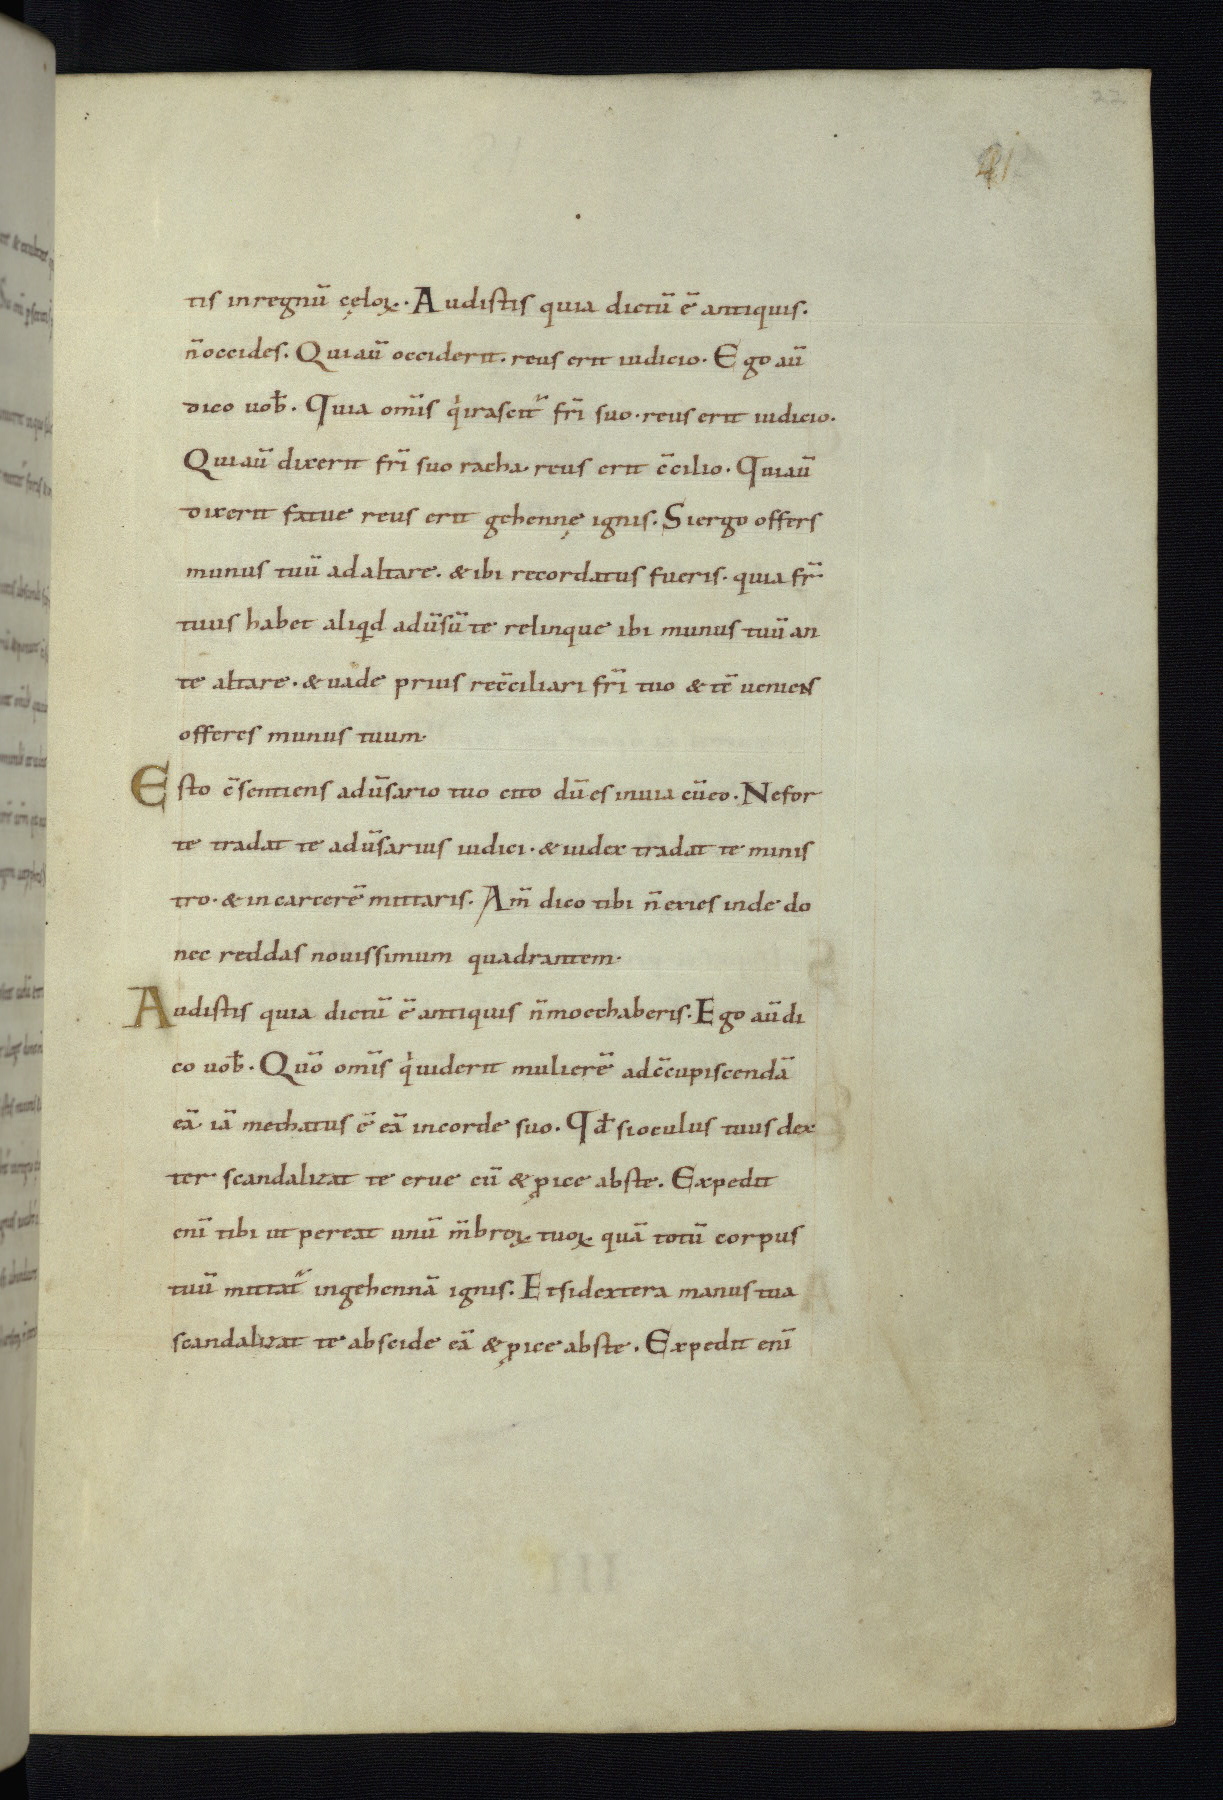 22
41
tis inregnū cęloꝝ. Audistis quia dictū ē antiquis.
n̄occides. Quiaū occiderit. reus erit iudicio. Ego aū
dico uob̄. Quia om̄is qͥirascit᷑ fr̄i suo. reus erit iudicio.
Quiaū dixerit fr̄i suo racha. reus erit c̄cilio. Quiaū
dixerit fatue reus erit gehennę ignis. Siergo offers
munus tuū adaltare. & ibi recordatus fueris. quia fr̄
tuus habet aliqd adūsū te relinque ibi munus tuū an
te altare. & uade prius rec̄ciliari fr̄i tuo & tē ueniens
offeres munus tuum.
Esto c̄sentiens adūsario tuo cito dū es inuia cūeo. Nefor
te tradat te adūsarius iudici. & iudex tradat te minis
tro. & incarcerē mittaris. Am̄ dico tibi n̄exies inde do
nec reddas nouissimum quadrantem.
Audistis quia dictū ē antiquis n̄moechaberis. Ego aūdi
co uob̄. Quō om̄is qͥuiderit mulierē adc̄cupiscendā
eā iā mechatus ē eā incorde suo. Qđ sioculus tuus dex
ter scandalizat te erue eū & ꝓice abste. Expedit
eni̅ tibi ut pereat unū m̄broꝝ tuoꝝ quā totū corpus
tuū mittat᷑ ingehennā ignis. Etsidextera manus tua
scandalizat te abscide eā & ꝓice abste. Expedit eni̅